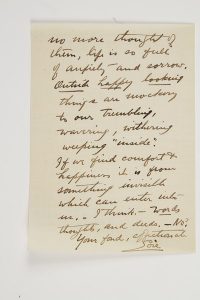 no more thought of
them, life is so full
of anxiety and sorrow.
Outside happy looking
things are mockery
to our trembling,
wavering, withering
weeping "inside".
If we find comfort &
happiness it is from
something invisible
which can enter into
us. - I think. - Words
thoughts, and deeds. - No?
Your fond, affectionate